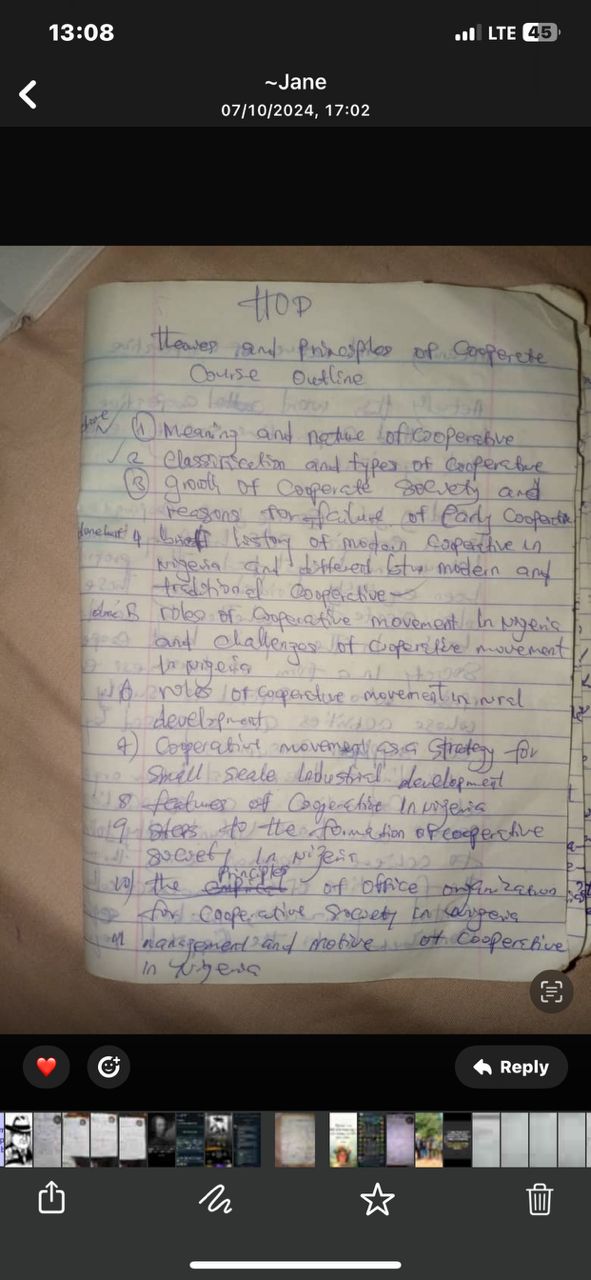 13:08
LTE 45
~Jane
07/10/2024, 17:02
HOD
and Principles of Cooperate
Course Outline
(1) Meaning and nature of Cooperative
2 Classification and types of Cooperative
(3) growth of Cooperate Society and
reasons for failure of Early
4 history of modern in
Nigeria and different btw modern and
traditional Cooperative
done 5 roles of Cooperative movement in Nigeria
and challenges of Cooperative movement
in Nigeria
6 roles of Cooperative movement in rural
development
7) Cooperative movement as a Strategy for
Small scale Industrial development
8 features of Cooperative in Nigeria
9 steps to the formation of cooperative
society in Nigeria
Principles
10) the of office organization
for Cooperative Society in Nigeria
11 management and motive of Cooperative
in Nigeria
Reply